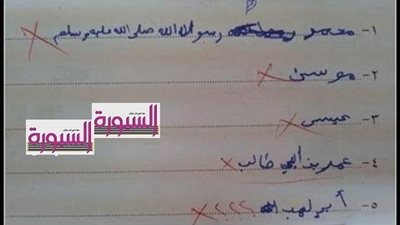 ١- محمد رسول الله صلى الله عليه وسلم
٢- موسى
٣- عيسى
السبورة
السبورة
٤- عمر بن أبي طالب
٥- أبي لهب ؟؟؟؟